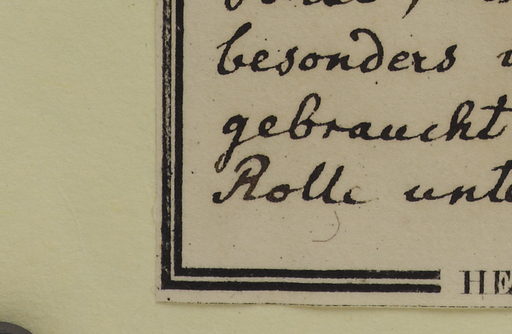 besonders
gebraucht
Rolle
HE